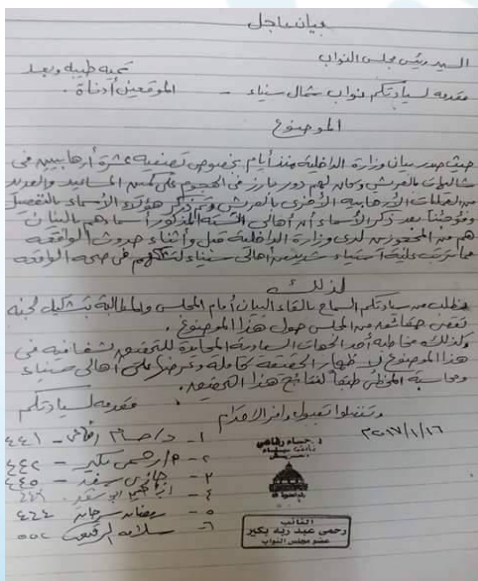 بيان عاجل
السيد رئيس مجلس النواب
تحية طيبة وبعد
مقدمه لسيادتكم نواب شمال سيناء - الموقعين أدناة .
الموضوع
حيث صدر بيان وزارة الداخلية منذ أيام بخصوص تصفية عشرة أرهابيين فى
بالعريش وكان لهم دور بارز فى الهجوم على كمين المساعيد والعديد
من العمليات الأرهابية الأخرى بالعريش وتم ذكر هؤلاء الأسماء بالتفصيل
وفوجئنا بعد ذكر الأسماء أن أهالى الستة المذكور أسماءهم بالبيان
هم من المحجوزين لدى وزارة الداخلية قبل وأثناء حدوث الواقعه
مما ترتب عليه أستياء شديد من أهالى سيناء لتشككهم فى صحة الواقعه
لذلك
نطلب من سيادتكم السماح بالقاء البيان أمام المجلس والمطالبة بتشكيل لجنه
تقصى حقائق من المجلس حول هذا الموضوع .
وكذلك مخاطبة أحد الجهات السيادية المحايدة للتحقيق بشفافيه فى
هذا الموضوع لاظهار الحقيقة كاملة وعرضها على أهالى سيناء
ومحاسبة المخطئ طبقاً لنتائج هذا التحقيق .
وتفضلوا بقبول وافر الاحترام
مقدمه لسيادتكم
٢٠١٧/١/١٦
١- د/ حسام رفاعى - ٤٤١
٢- م/ رحمى بكير - ٤٤٢
٣- - ٤٤٥
٤-
٥- رمضان سرحان ٤٤٤
٦- سلامه الرقيعى ٥٥٢
د. حسام رفاعى
النائب
رحمى عبد ربه بكير
عضو مجلس النواب